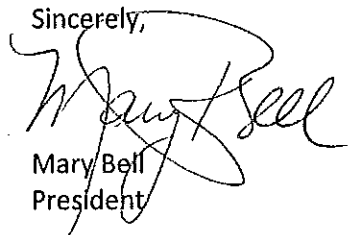 Sincerely,
Mary Bell
Mary Bell
President